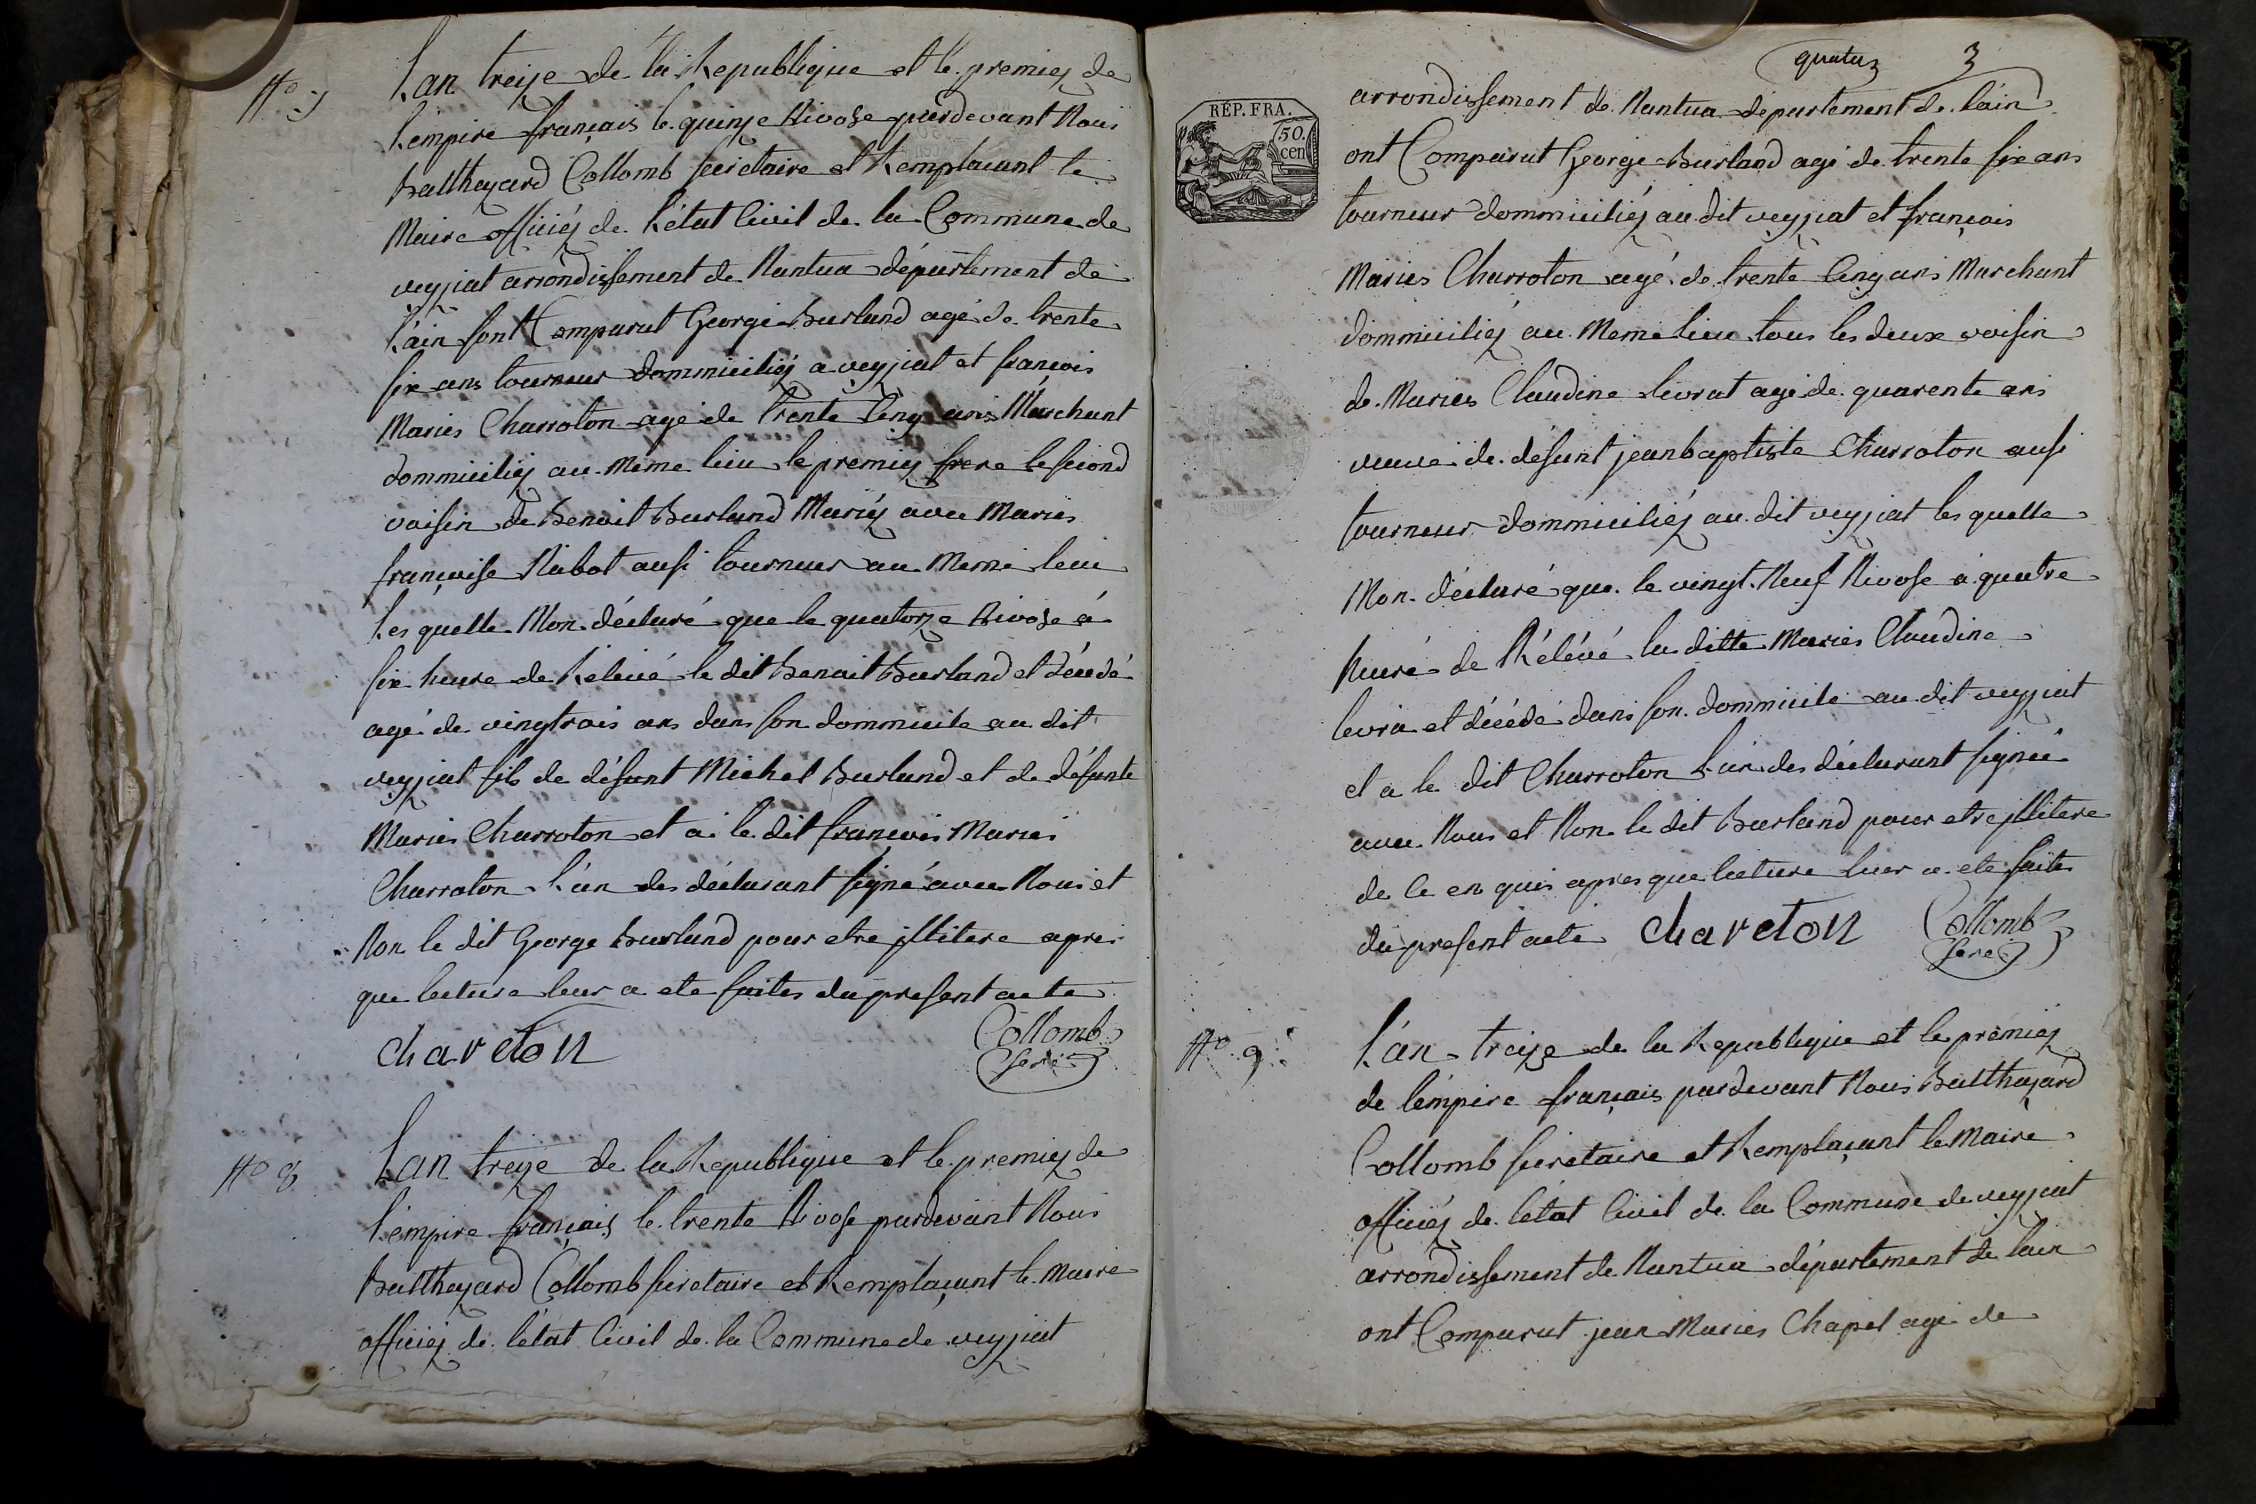 N.o 7
L'an treize de la Republique et le premiez de
l'empire français le quinze Nivose pardevant Nous
Balthazard Collomb secretaire et Remplacant le
Maire officiéz de l'état Civil de la Commune de
veyziat arrondissement de Nantua département de
l'ain sont Comparut George Burland agé de trente
six ans tourneur dommiciliéz a veyziat et francois
Maries Charroton agé de trente Cinq ans Marchant
dommiciliéz au Meme lieu le premiez frere le second
voisin de Benoit Burland Mariéz avec Maries
françoise Nabot aussi tourneur au Meme leiu
Les quelle Mon déclaré que le quatorze Nivose a
six heure de Relevé le dit Benoit Burland et décédé
agé de vingtrois ans dans son dommicile au dit
veyziat fils de défunt Michel Burland et de défunte
Maries Charroton et a le dit francois Maries
Charroton l'un des déclarant signé avec Nous et
Non le dit George Burland pour etre jllitere apres
que lecture leur a ete faites du present acte
charoton Collomb
secre
N.o 8
L'an treze de la Republique et le premiez de
l'empire français le trente Nivose pardevant Nous
Balthazard Collomb secretaire et Remplaçant le Maire
officiéz de l'état Civil de la Commune de veyziat
quatuz 3
RÉP. FRA.
50.
cen
arrondissement de Nantua département de lain
ont Comparut George Burland agé de trente six ans
tourneur dommiciliéz au dit veyziat et françois
Maries Charroton agé de trente Cinq ans Marchant
dommiciliéz au Meme lieu tous les deux voisin
de Maries Claudine Levrat agé de quarente ans
veuve de défunt jeanbaptiste Charroton aussi
tourneur dommiciliéz au dit veyziat les quelle
Mon déclaré que le vingt Neuf Nivose a quatre
heure de Rélévé la ditte Maries Claudine
levra et décédé dans son dommicile au dit veyziat
et a le dit Charroton l'un des déclarant signé
avec Nous et Non le dit Burland pour etre jllitere
de ce en quis apres que lecture luer a ete faites
du present acte chareton Collomb
secre
N.o 9
L'an treize de la Republique et le premiez
de l'empire français pardevant Nous Balthazard
Collomb secretaire et Remplaçant le Maire
officiéz de l'état Civil de la Commune de veyziat
arrondissement de Nantua département de lain
ont Comparut jean Maries Chapel agé de